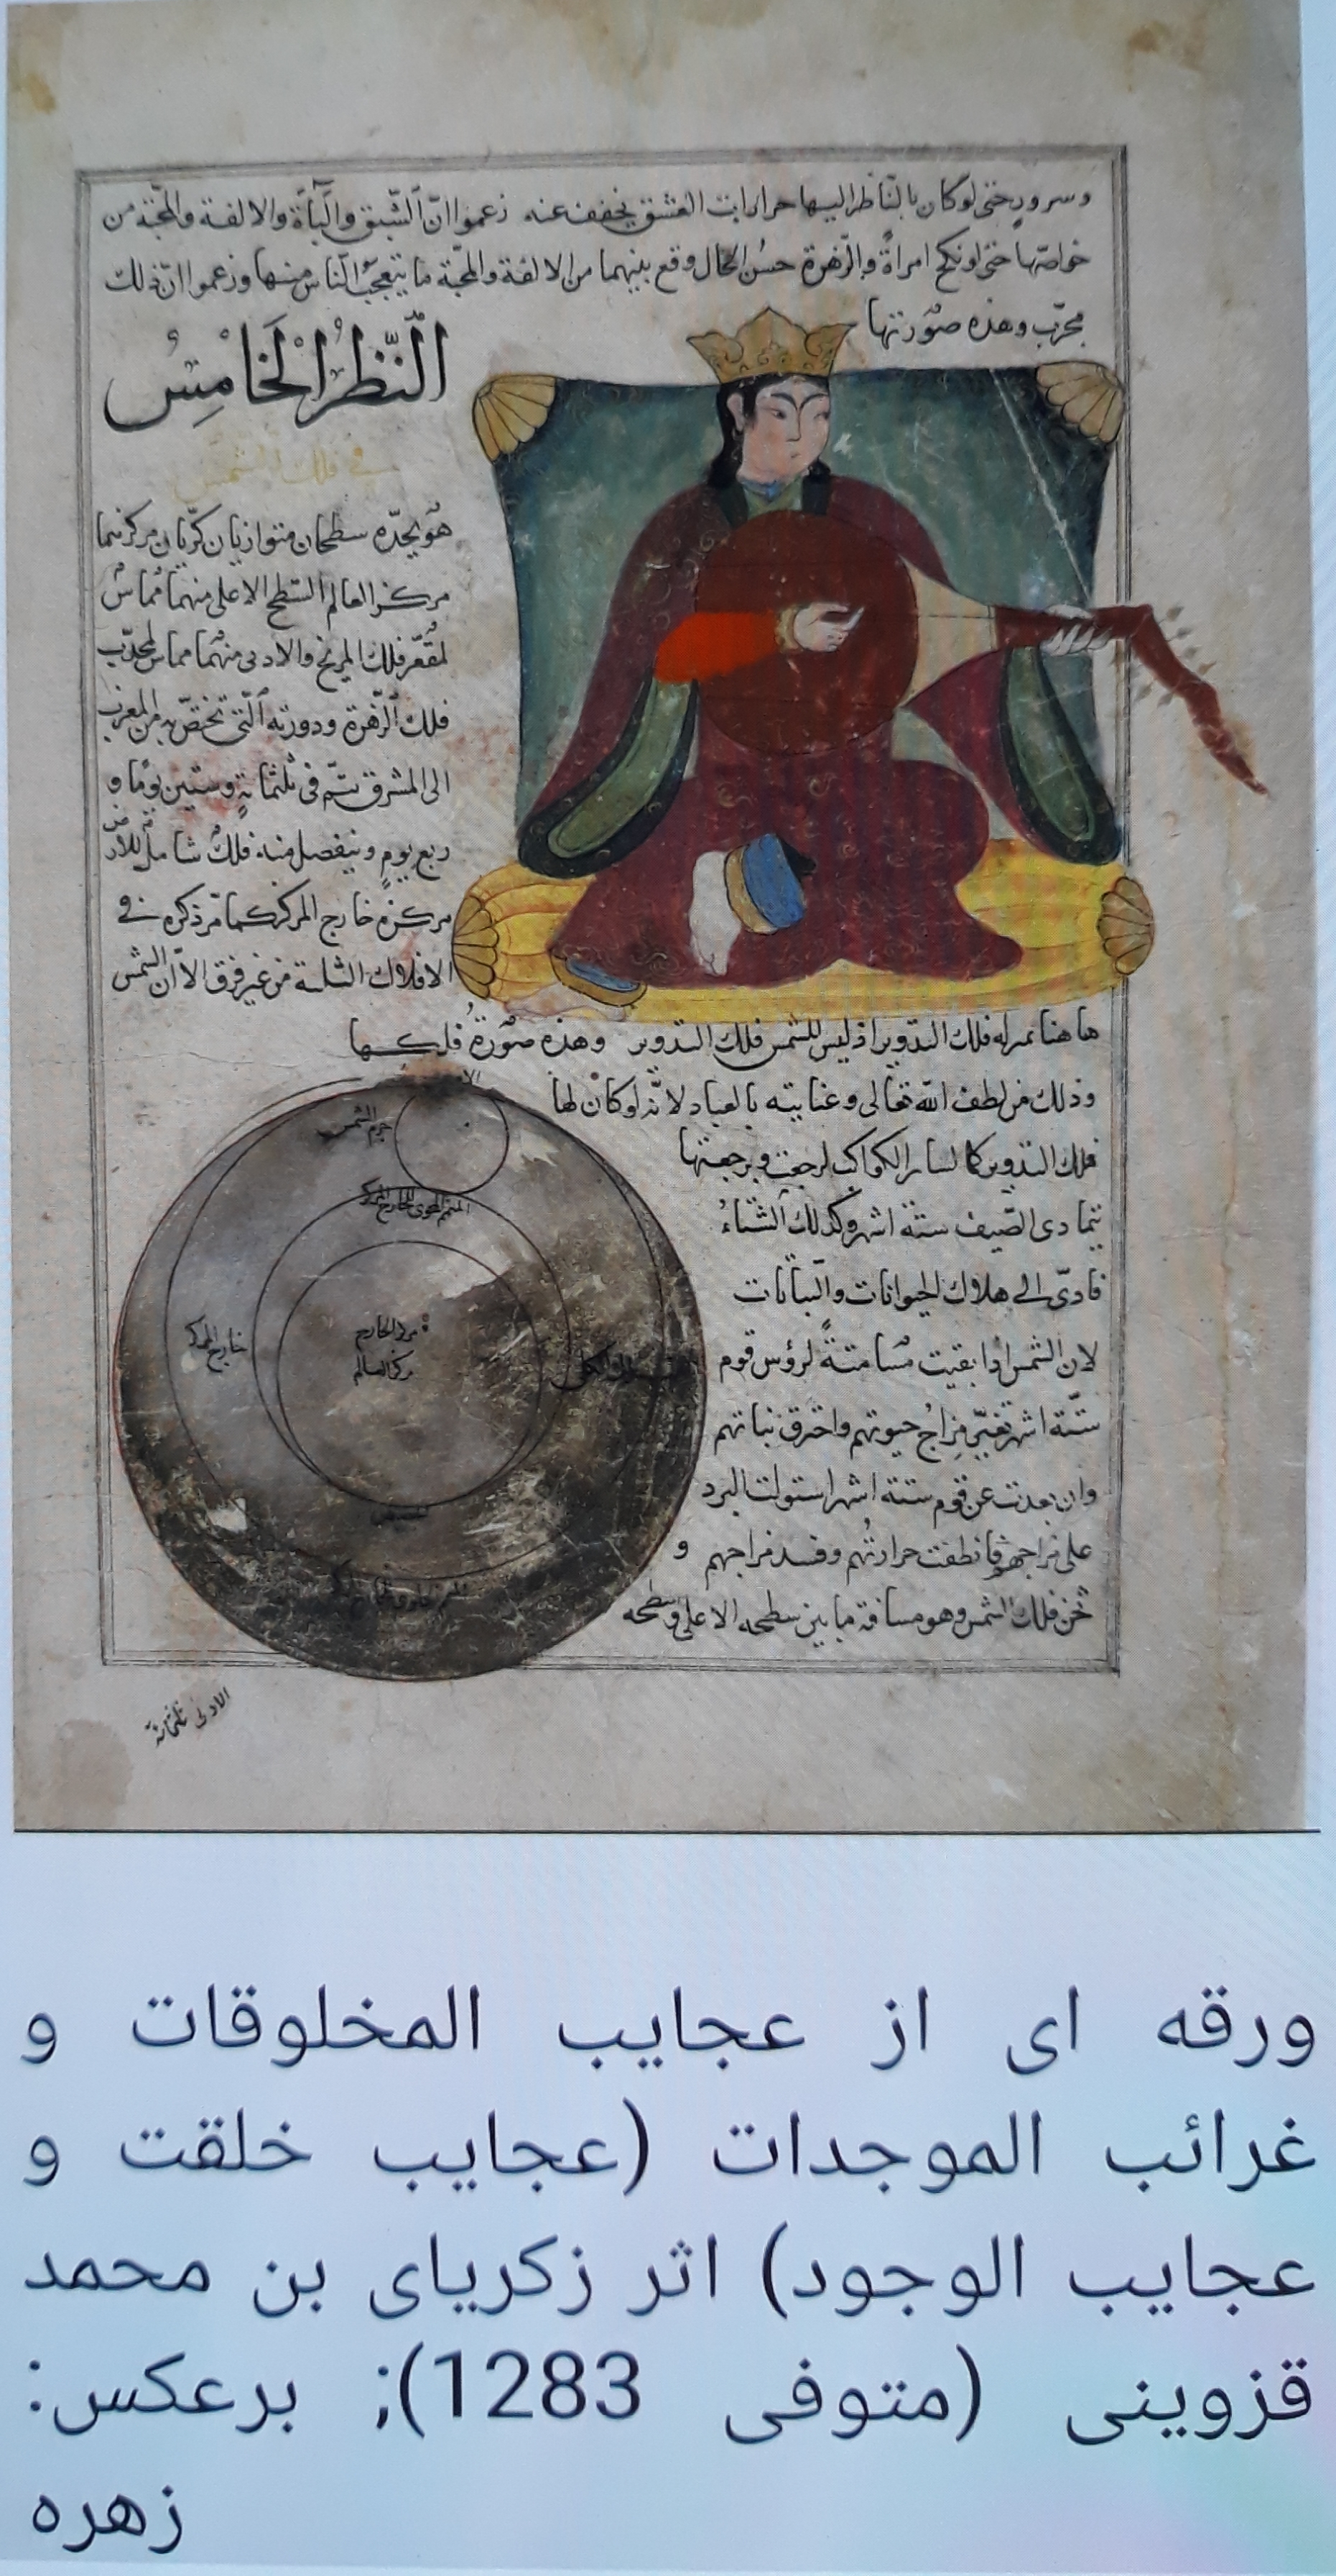 وسرور حتى لو كان بالناظر اليها حرارات العشق يخفف عنه زعموا انّ الشبق والباءة والالفة والمحبّة من
خواصّها حتى لو نكح امراةً والزهرة حسن الحال وقع بينهما من الالفة والمحبّة ما يتعجب الناس منها وزعموا انّ ذلك
مجرّب وهذه صورتها
النّظر الخامس
في فلك الشمس
هو يحدّه سطحان متوازيان كريان مركزهما
مركز العالم السطح الاعلى منهما مماسّ
لمقعّر فلك المريخ والادنى منهما مماس لمحدّب
فلك الزهرة ودورته التي تختصّ به من المغرب
الى المشرق تتم في ثلثمائة وستين يوما و
ربع يوم وينفصل منه فلك شامل للارض
مركزه خارج المركز كما مرّ ذكره في
الافلاك الثلثة من غير فرق الا ان الشمس
هاهنا بمنزلة فلك التدوير اذ ليس للشمس فلك التدوير وهذه صورة فلكها
وذلك من لطف الله تعالى وعنايته بالعباد لانه لو كان لها
فلك التدوير كما لسائر الكواكب لرجعت وبرجعتها
يتمادى الصيف ستة اشهر وكذلك الشتاء
فادّى الى هلاك الحيوانات والنباتات
لان الشمس اذا بقيت مسامتة لرؤس قوم
ستة اشهر تغير مزاج حيوتهم واحترق نباتهم
وان بعدت عن قوم ستة اشهر استولت البرد
على مزاجهم فانطفت حرارتهم وفسد مزاجهم و
ثخن فلك الشمس وهو مسافة ما بين سطحه الاعلى وسطحه
جرم الشمس
المتمم المحوى للخارج المركز
خارج المركز
مركز الخارج
مركز العالم
الادنى ثلثمائة
ورقه ای از عجایب المخلوقات و
غرائب الموجدات (عجایب خلقت و
عجایب الوجود) اثر زکریای بن محمد
قزوینی (متوفی 1283); برعکس:
زهره